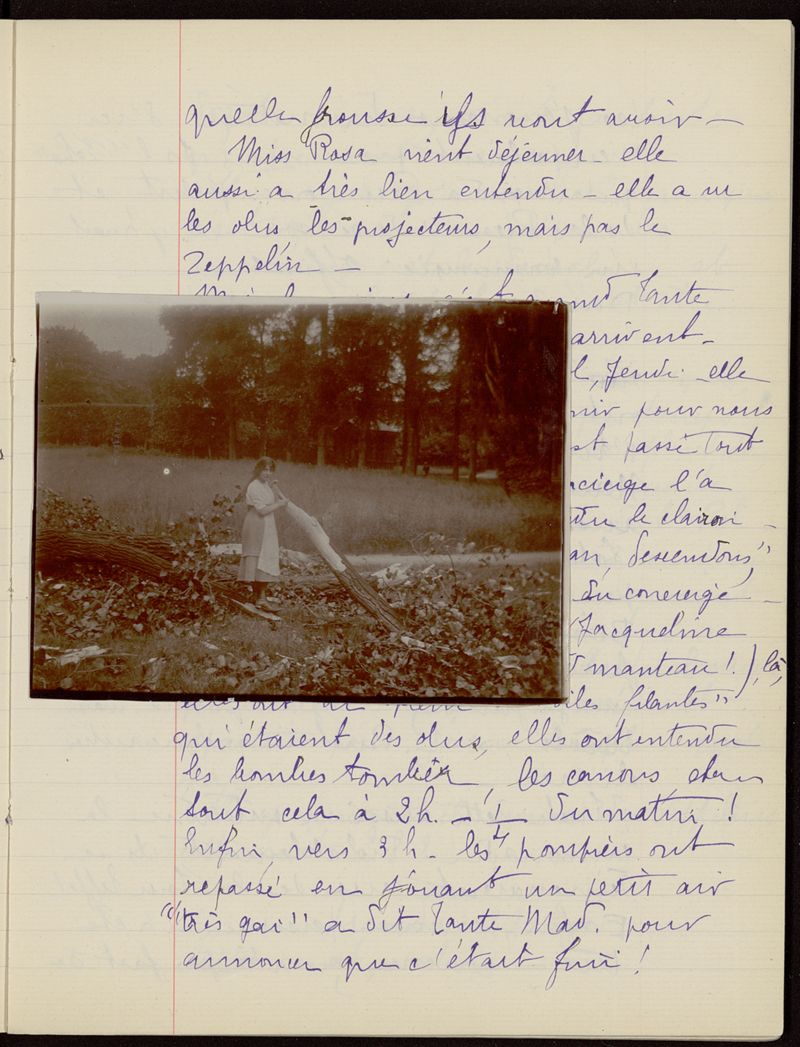 quelle frousse ils vont avoir —
Miss Rosa vient déjeuner - elle
aussi a très bien entendu - elle a vu
les obus les projecteurs, mais pas le
Zeppelin —
quand Tante
arrivent -
elle
pour nous
passé Tout
l'a
le clairon -
descendons"
du concierge -
(Jacqueline
manteau !.), là,
filantes"
qui étaient des obus, elles ont entendu
les bombes tomber, les canons,
tout cela à 2h. - 1/4 du matin !
Enfin, vers 3h - les pompiers ont
repassé en jouant un petit air
"très gai" a dit Tante Mad. pour
annoncer que c'était fini !